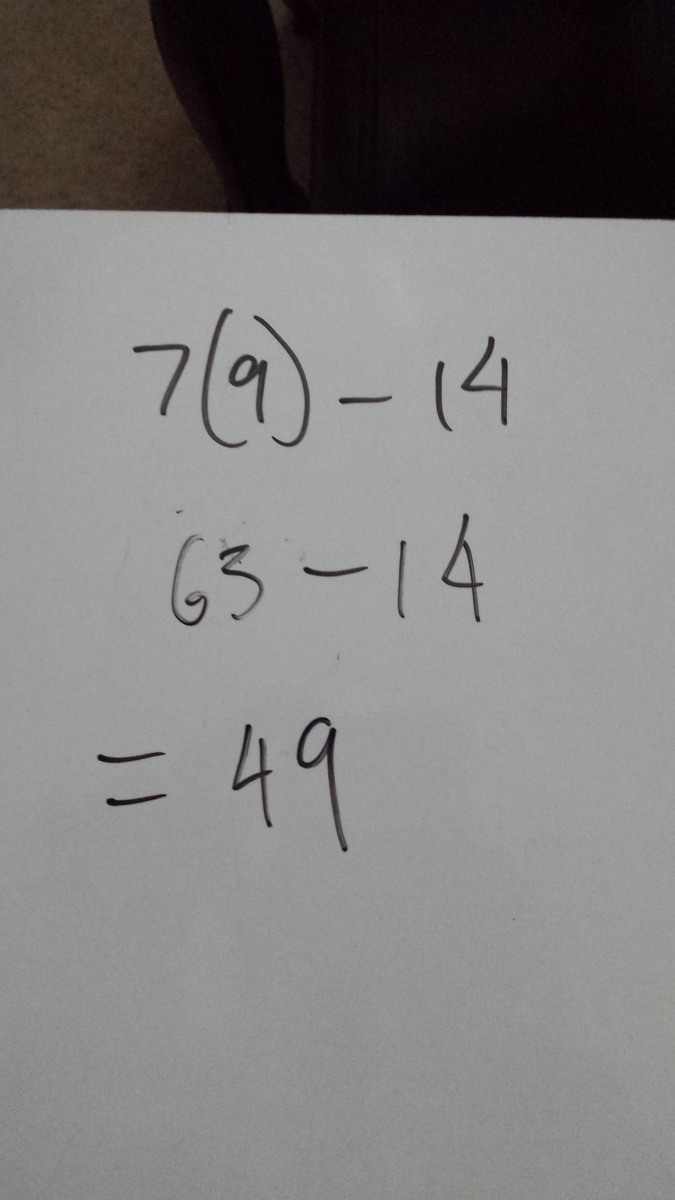 7(9) - 14
63 - 14
= 49